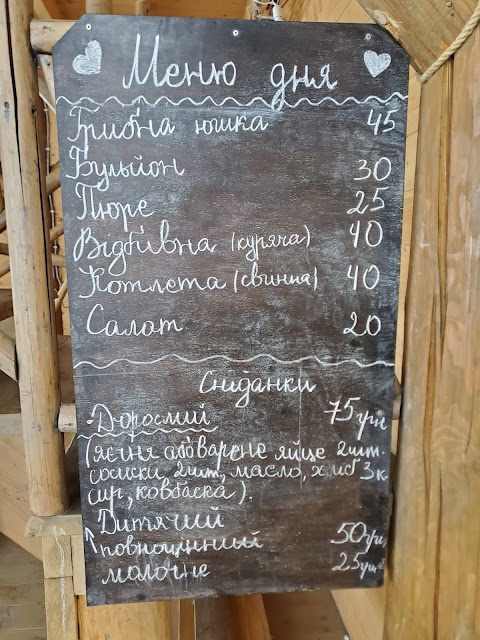 Меню дня
Грибна юшка 45
Бульйон 30
Пюре 25
Відбивна (куряча) 40
Котлета (свинна) 40
Салат 20
Сніданки
Дорослий 75 грн
(яєчня або варене яйце 2 шт.
сосиски 2 шт, масло, хліб 3 к.
сир, ковбаска).
Дитячий
повноцінний 50 грн
молочне 25 грн